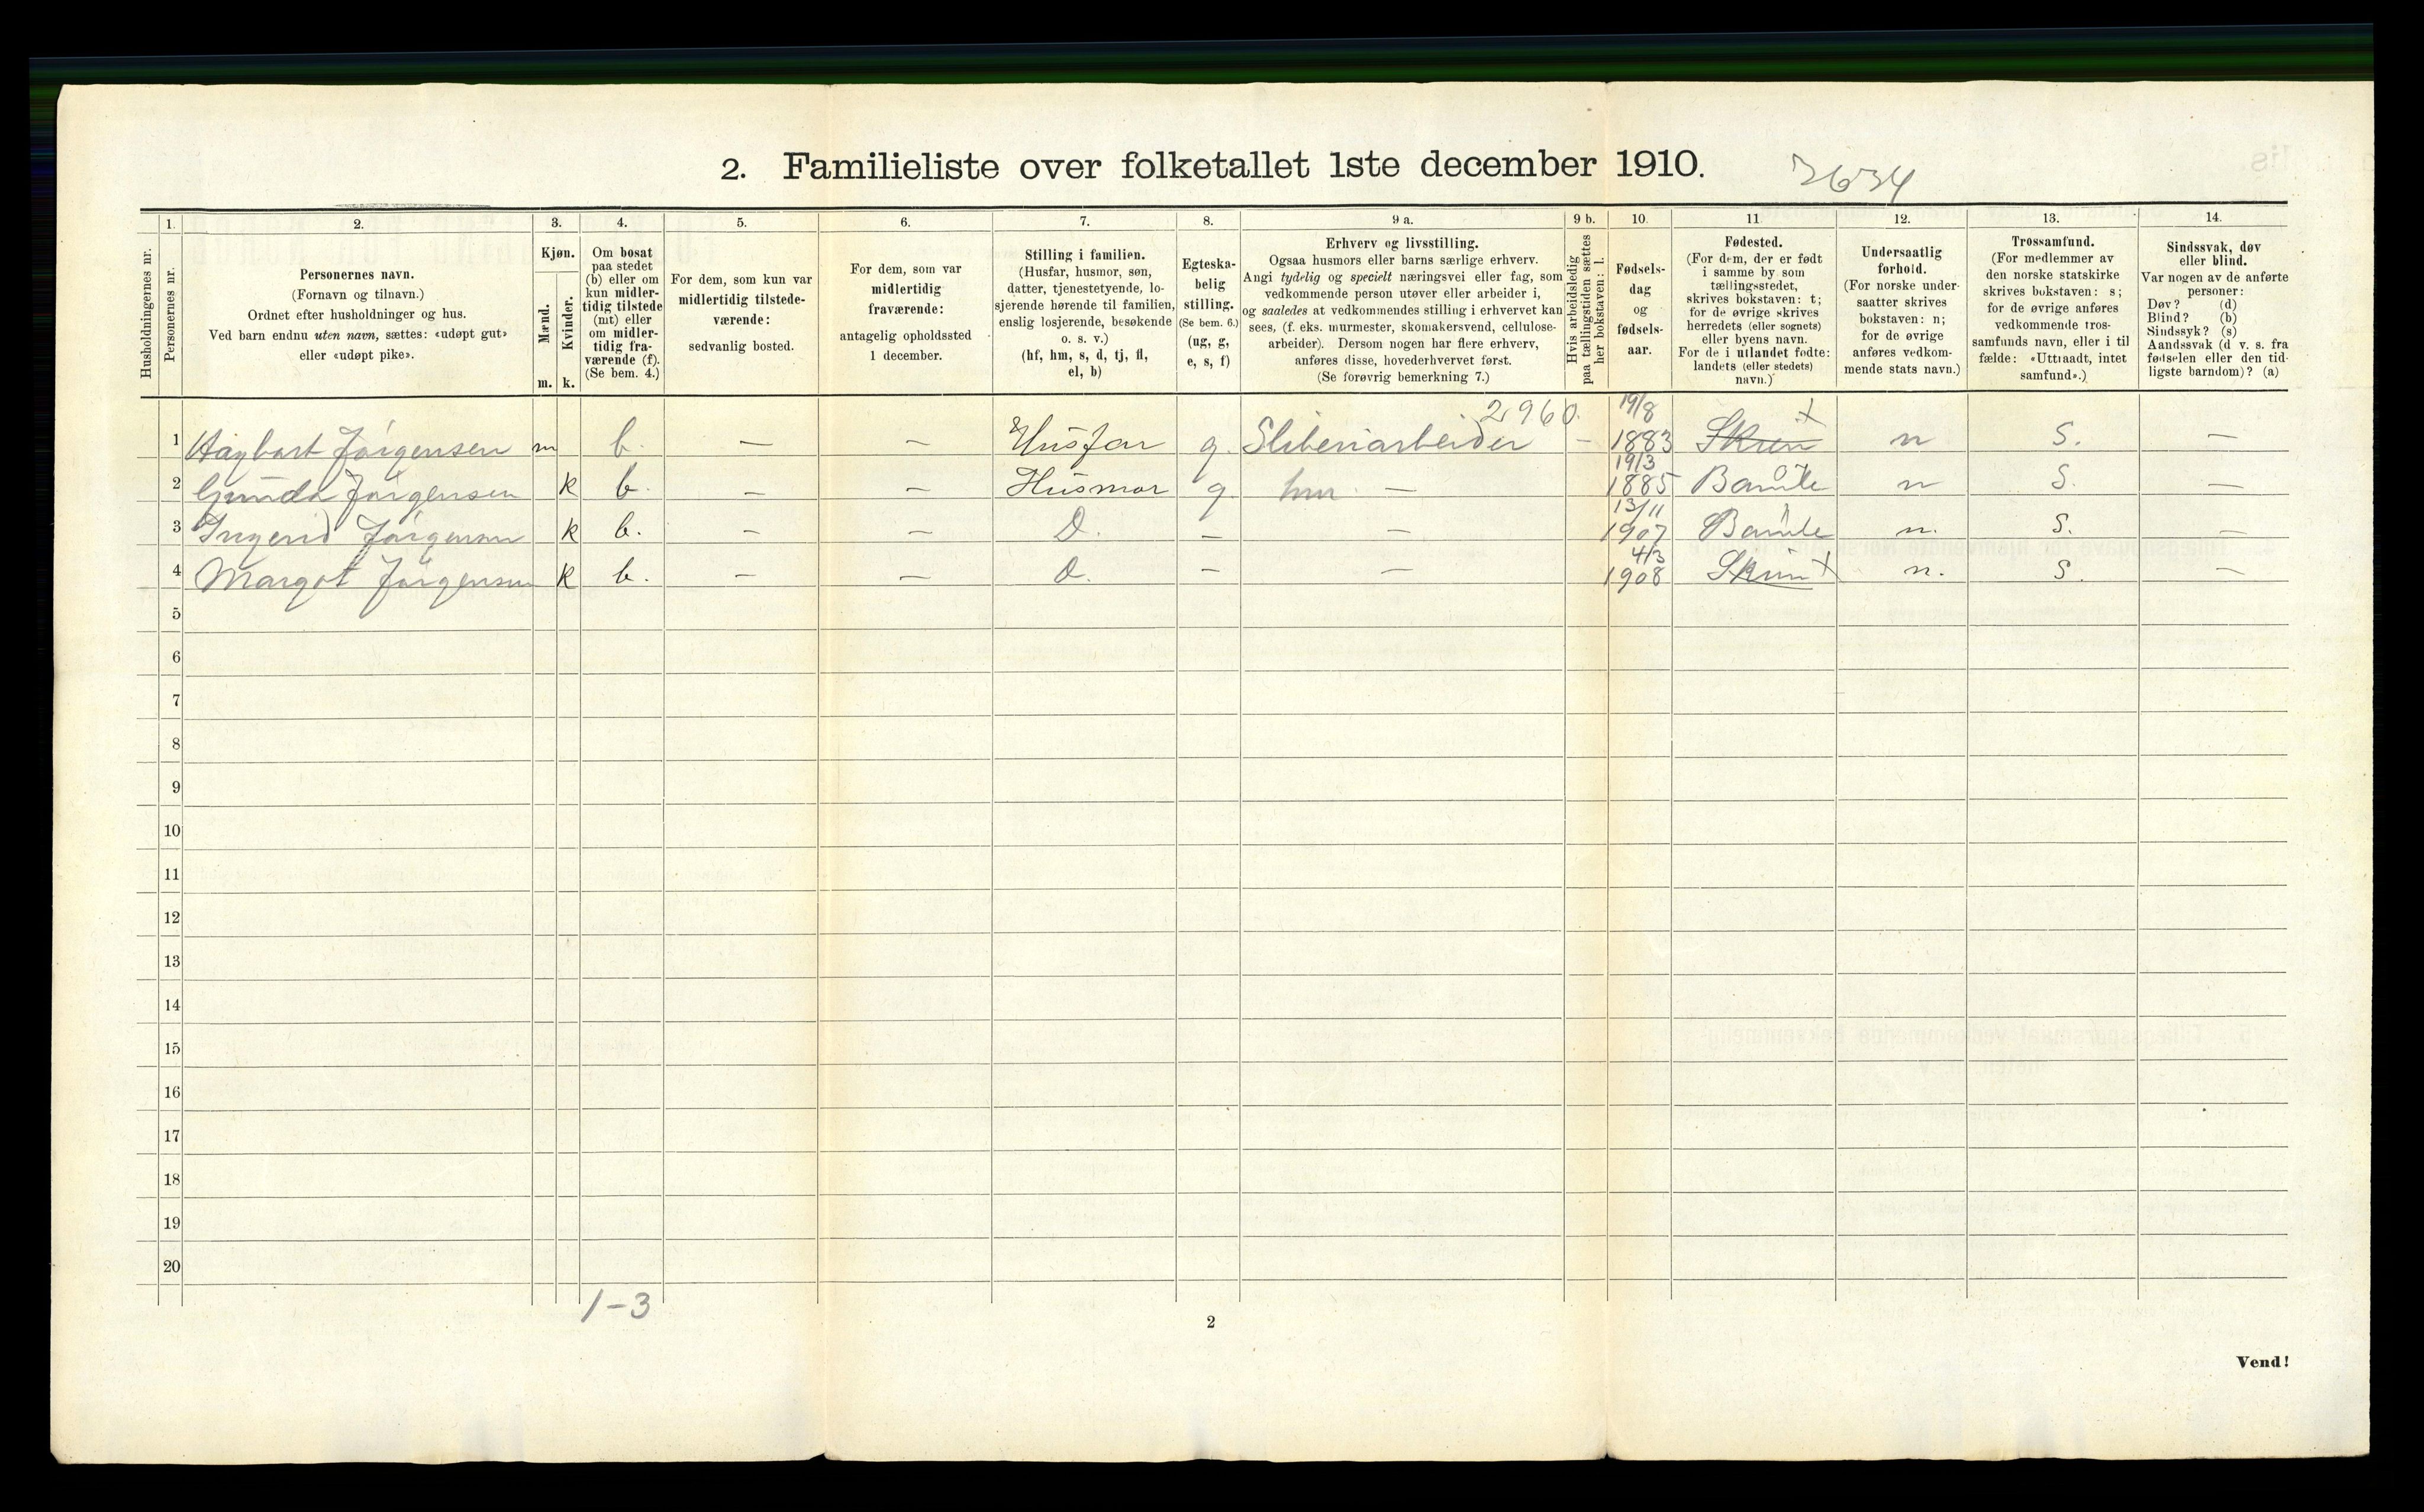 2. Familieliste over folketallet 1ste december 1910.
3634
Husholdningernes nr.
1.
Personernes nr.
2.
Personernes navn.
(Fornavn og tilnavn.)
Ordnet efter husholdninger og hus.
Ved barn endnu uten navn, sættes: «udøpt gut»
eller «udøpt pike».
3.
Kjøn.
Mænd.
Kvinder.
m. k.
4.
Om bosat
paa stedet
(b) eller om
kun midler-
tidig tilstede
(mt) eller
om midler-
tidig fra-
værende (f).
(Se bem. 4.)
5.
For dem, som kun var
midlertidig tilstede-
værende:
sedvanlig bosted.
6.
For dem, som var
midlertidig
fraværende:
antagelig opholdssted
1 december.
7.
Stilling i familien.
(Husfar, husmor, søn,
datter, tjenestetyende, lo-
sjerende hørende til familien,
enslig losjerende, besøkende
o. s. v.)
(hf, hm, s, d, tj, fl,
el, b)
8.
Egteska-
belig
stilling.
(Se bem. 6.)
(ug, g,
e, s, f)
9 a.
Erhverv og livsstilling.
Ogsaa husmors eller barns særlige erhverv.
Angi tydelig og specielt næringsvei eller fag, som
vedkommende person utøver eller arbeider i,
og saaledes at vedkommendes stilling i erhvervet kan
sees, (f. eks. murmester, skomakersvend, cellulose-
arbeider). Dersom nogen har flere erhverv,
anføres disse, hovederhvervet først.
(Se forøvrig bemerkning 7.)
9 b.
Hvis arbeidsledig
paa tællingstiden sættes
her bokstaven: l.
10.
Fødsels-
dag
og
fødsels-
aar.
11
Fødested.
(For dem, der er født
i samme by som
tællingsstedet,
skrives bokstaven: t;
for de øvrige skrives
herredets (eller sognets)
eller byens navn.
For de i utlandet fødte:
landets (eller stedets)
navn.)
12.
Undersaatlig
forhold.
(For norske under-
saatter skrives
bokstaven: n;
for de øvrige
anføres vedkom-
mende stats navn.)
13.
Trossamfund.
(For medlemmer av
den norske statskirke
skrives bokstaven: s;
for de øvrige anføres
vedkommende tros-
samfunds navn, eller i til
fælde: «Uttraadt, intet
samfund».)
14.
Sindssvak, døv
eller blind.
Var nogen av de anførte
personer:
Døv? (d)
Blind? (b)
Sindssyk? (s)
Aandssvak (d v. s. fra
fødselen eller den tid-
ligste barndom)? (a)
2960. 19/8 x
1 Hagbart Jørgensen m b. — — Husfar g. Sliberiarbeider – 1883 Skien n S. —
19/3
2 Gunda Jørgensen k b. — — Husmor g. hm — 1885 Bamle n S. —
13/11
3 Ingerid Jørgensen k b. — — D. — — 1907 Bamle n. S. —
4/3
4 Margot Jørgensen k b. — — D. — — 1908 Skien x n. S. —
5
6
7
8
9
10
11
12
13
14
15
16
17
18
19
20
1-3
2
Vend!